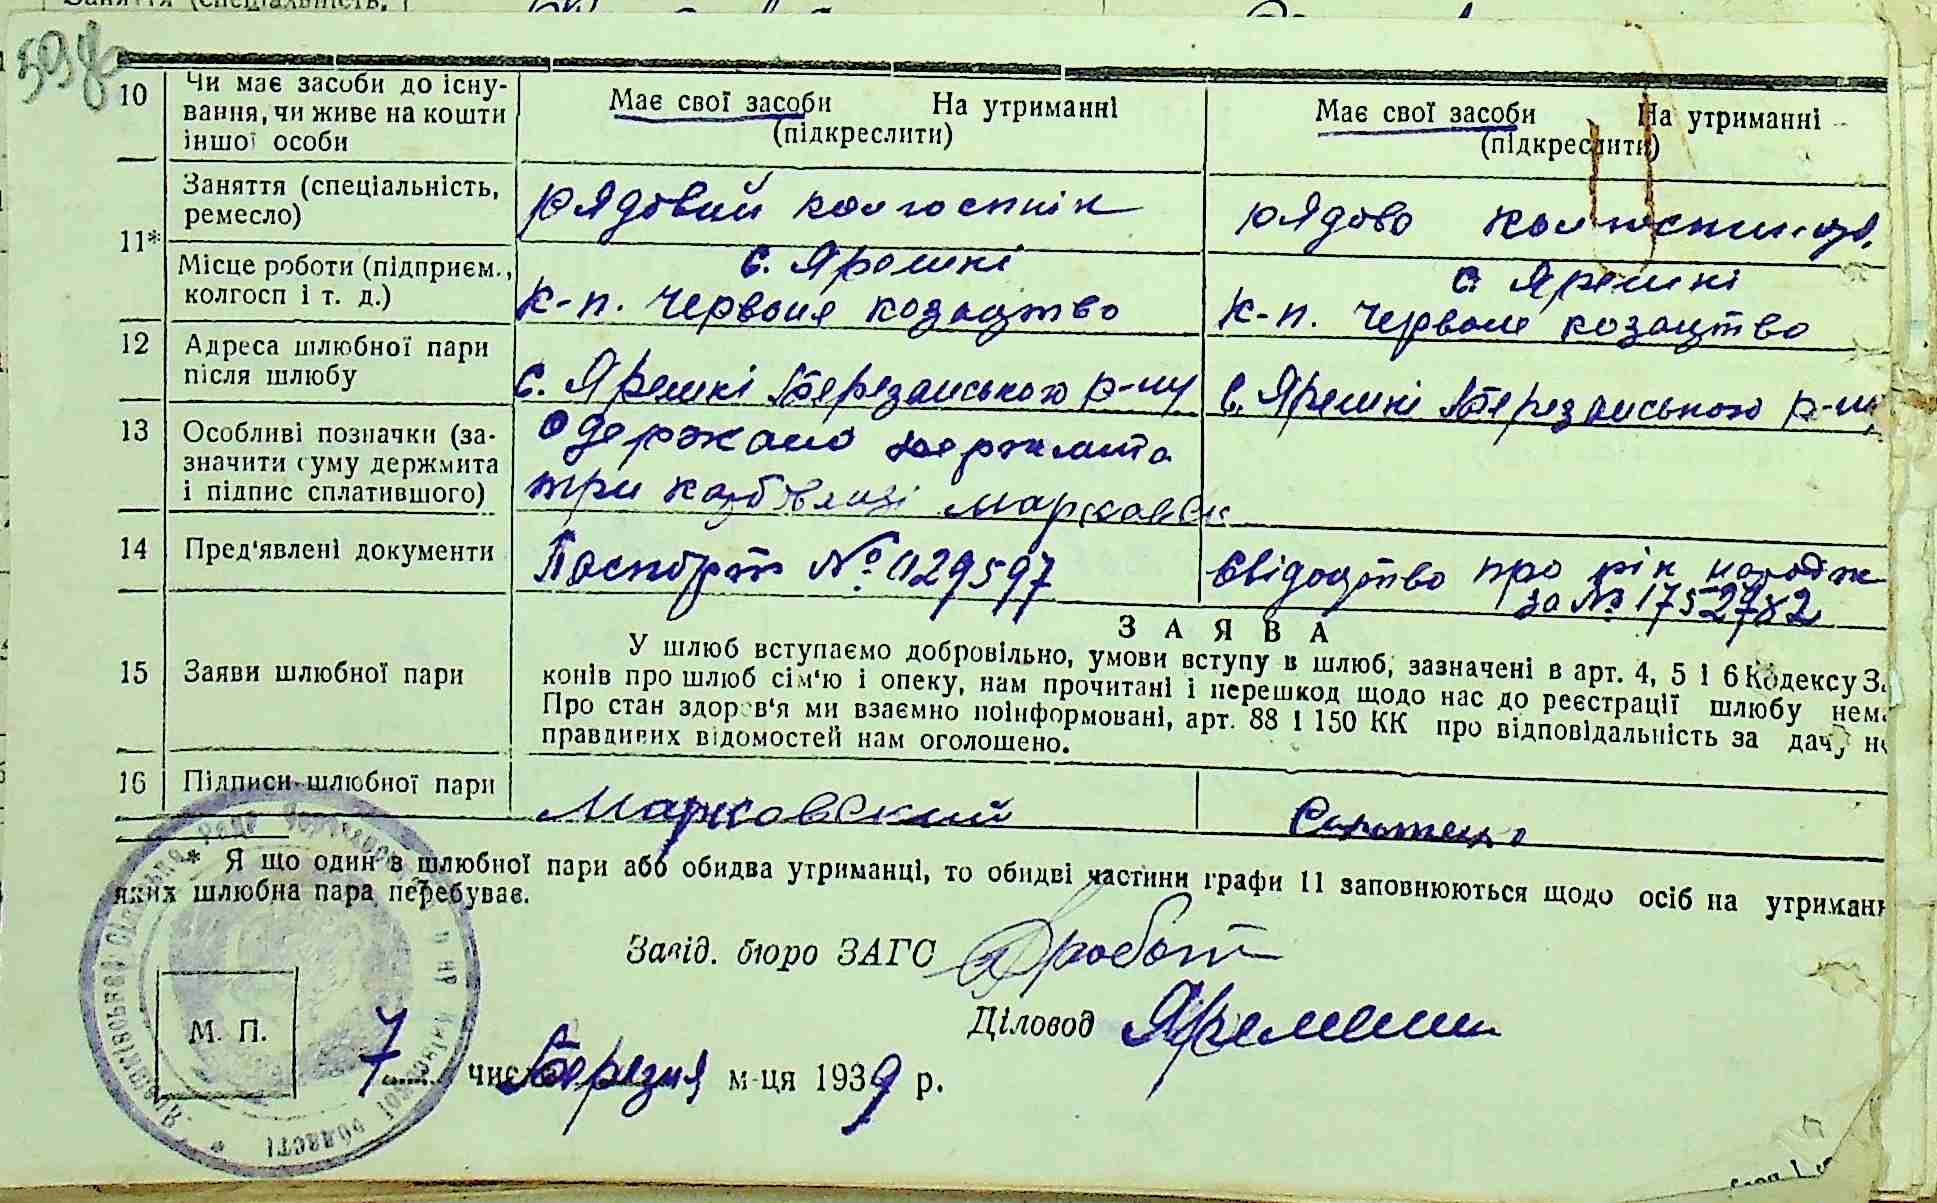 59
10 Чи має засоби до існу-
вання, чи живе на кошти
іншої особи
Має свої засоби На утриманні
(підкреслити)
Має свої засоби На утриманні
(підкреслити)
11* Заняття (спеціальність,
ремесло)
рядовий колгоспнік
рядова колгоспниця
Місце роботи (підприєм.,
колгосп і т. д.)
с. Ярешкі
к-п. Червоне козацтво
с. Ярешкі
к-п. Червоне козацтво
12 Адреса шлюбної пари
після шлюбу
с. Ярешкі Березанського р-ну
с. Ярешкі Березанського р-ну
13 Особливі позначки (за-
значити суму держмита
і підпис сплатившого)
Одержано держмита
три карбованці Марковск
14 Пред'явлені документи
Паспорт № 029597
Свідоцтво про рік народж
за № 1752782
15 Заяви шлюбної пари
ЗАЯВА
У шлюб вступаємо добровільно, умови вступу в шлюб, зазначені в арт. 4, 5 і 6 Кодексу За
конів про шлюб сім'ю і опеку, нам прочитані і перешкод щодо нас до реєстрації шлюбу нема
Про стан здоров'я ми взаємно поінформовані, арт. 88 і 150 КК про відповідальність за дачу не
правдивих відомостей нам оголошено.
16 Підписи шлюбної пари
Марковский
* Я що один в шлюбної пари або обидва утриманці, то обидві частини графи 11 заповнюються щодо осіб на утриманн
яких шлюбна пара перебуває.
Завід. бюро ЗАГС Дробот
Діловод
М. П.
7 числа Березня м-ця 1939 р.